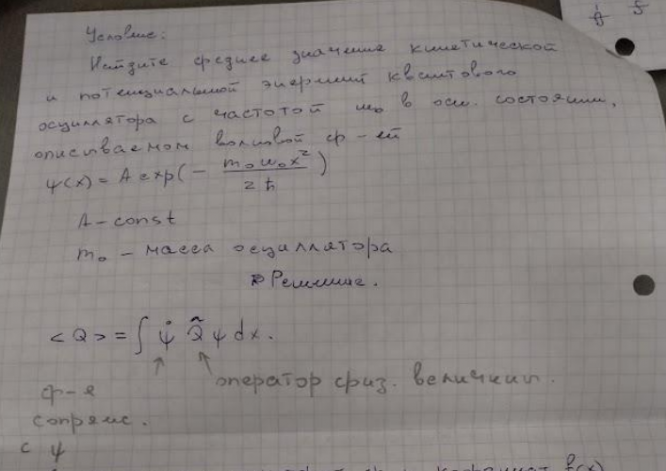 Условие:
Найдите среднее значение кинетической
и потенциальной энергий квантового
осциллятора с частотой ω₀ в осн. состоянии,
описываемом волновой ф-ей
ψ(x) = A exp(- m₀ω₀x² / 2ħ)
A - const
m₀ - масса осциллятора
Решение.
<Q> = ∫ ψ* Q̂ ψ dx.
ф-я оператор физ. величины.
сопряж.
с ψ